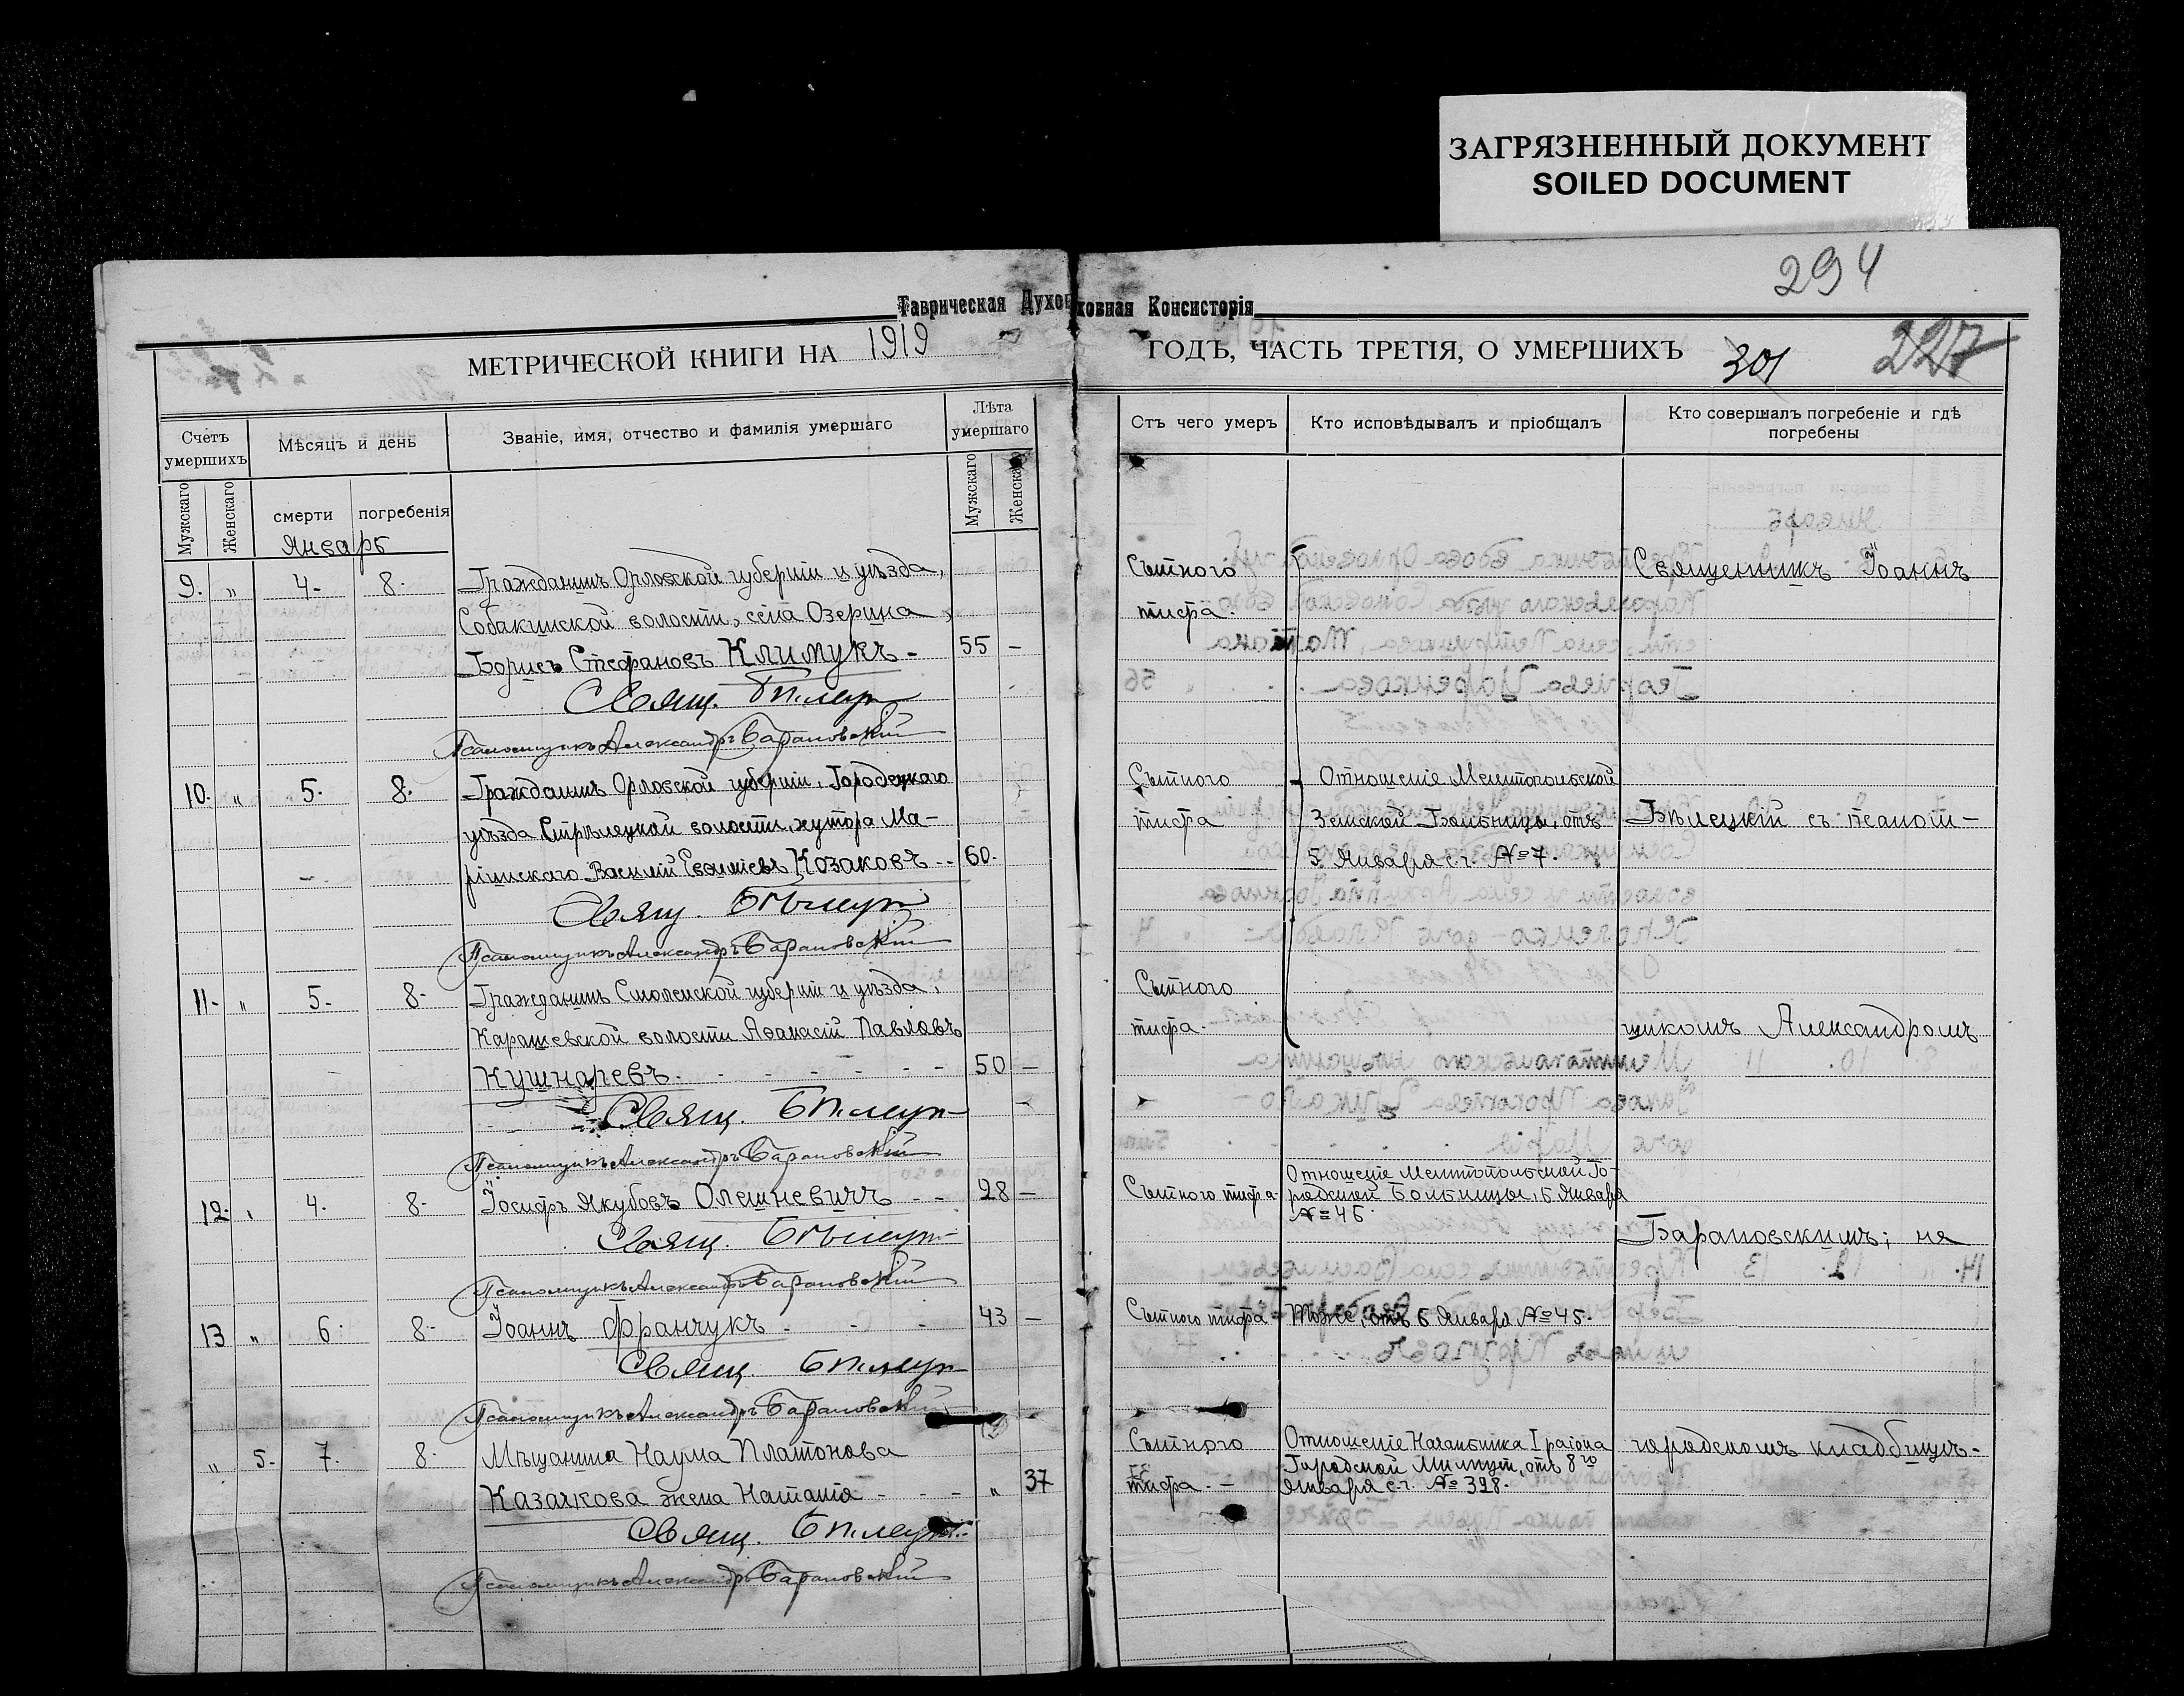 ЗАГРЯЗНЕННЫЙ ДОКУМЕНТ
SOILED DOCUMENT
294
Таврическая Духовная Консисторія
МЕТРИЧЕСКОЙ КНИГИ НА 1919 ГОДЪ, ЧАСТЬ ТРЕТІЯ, О УМЕРШИХЪ
301 227
Счетъ умершихъ
Мѣсяцъ и день
Званіе, имя, отчество и фамилія умершаго
Лѣта умершаго
Отъ чего умеръ
Кто исповѣдывалъ и пріобщалъ
Кто совершалъ погребеніе и гдѣ погребены
Мужскаго Женскаго смерти погребенія Мужскаго Женскаго
Январь
9. " 4- 8- Гражданинъ Орловской губерніи и уѣзда, Сыпного Священникъ Іоаннъ
Собакинской волости, села Озерина, тифа.
Борисъ Стефановъ Климукъ - 55 -
Свящ. Бѣлецк
Псаломщикъ Александръ Барановскій
10. " 5- 8. Гражданинъ Орловской губерніи, Городецкаго Сыпного Отношеніе Мелитопольской
уѣзда Стрѣлецкой волости, хутора Ма- тифа Земской Больницы, отъ Бѣлецкій съ псалом-
ріинскаго Василій Козаковъ -- 60. 5 Января с.г. № 7.
Свящ. Бѣлецк
Псаломщикъ Александръ Барановскій
11- " 5- 8- Гражданинъ Смоленской губерніи и уѣзда, Сыпного
волости Аѳанасій Павловъ тифа. щикомъ Александромъ
Кушнаревъ - - - - - - - 50 -
Свящ. Бѣлецк
Псаломщикъ Александръ Барановскій
12. " 4. 8- Іосифъ Якубовъ Олешневичъ - - 28 - Сыпного тифа. Отношеніе Мелитопольской Го-
родской Больницы, 5 Января
№ 45. Барановскимъ; на
Свящ. Бѣлецк
Псаломщикъ Александръ Барановскій
13 " 6- 8- Іоаннъ Франчукъ - - - 43 - Сыпного тифа Тоже, отъ 6 Января № 45.
Свящ. Бѣлецк
Псаломщикъ Александръ Барановскій
" 5- 7. 8- Мѣщанина Наума Платонова Сыпного Отношеніе Начальника I района городскомъ кладбищѣ-
Казачкова жена Наталія - - - " 37 тифа. - Городской Милиціи, отъ 8го
Января с.г. № 328.
Свящ. Бѣлецк
Псаломщикъ Александръ Барановскій